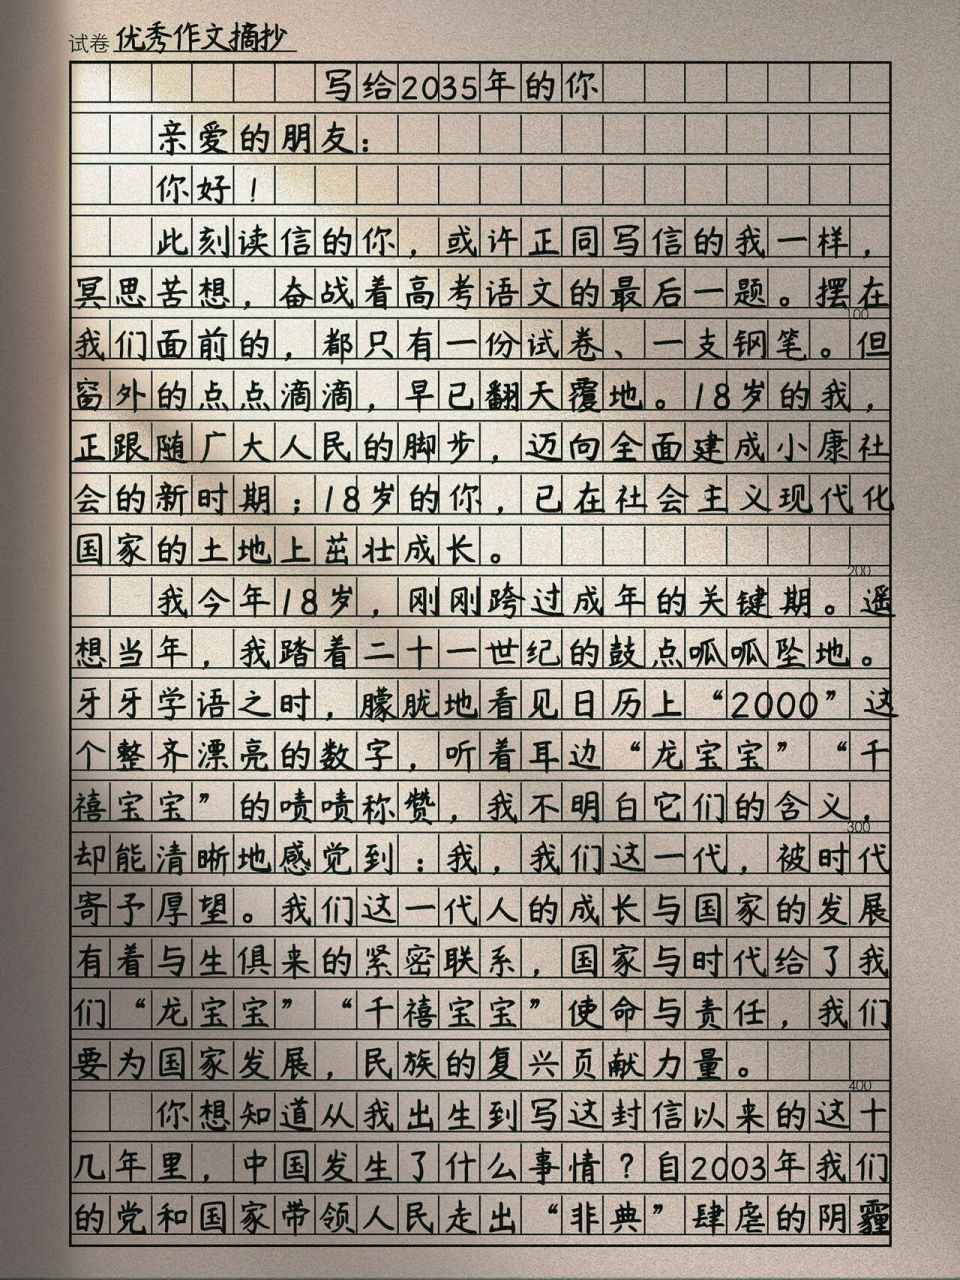 试卷 优秀作文摘抄
写给2035年的你
亲爱的朋友：
你好！
此刻读信的你，或许正同写信的我一样，
冥思苦想，奋战着高考语文的最后一题。摆在
100
我们面前的，都只有一份试卷、一支钢笔。但
窗外的点点滴滴，早已翻天覆地。18岁的我，
正跟随广大人民的脚步，迈向全面建成小康社
会的新时期；18岁的你，已在社会主义现代化
国家的土地上茁壮成长。
200
我今年18岁，刚刚跨过成年的关键期。遥
想当年，我踏着二十一世纪的鼓点呱呱坠地。
牙牙学语之时，朦胧地看见日历上“2000”这
个整齐漂亮的数字，听着耳边“龙宝宝”“千
禧宝宝”的啧啧称赞，我不明白它们的含义，
300
却能清晰地感觉到：我，我们这一代，被时代
寄予厚望。我们这一代人的成长与国家的发展
有着与生俱来的紧密联系，国家与时代给了我
们“龙宝宝”“千禧宝宝”使命与责任，我们
要为国家发展，民族的复兴贡献力量。
400
你想知道从我出生到写这封信以来的这十
几年里，中国发生了什么事情？自2003年我们
的党和国家带领人民走出“非典”肆虐的阴霾